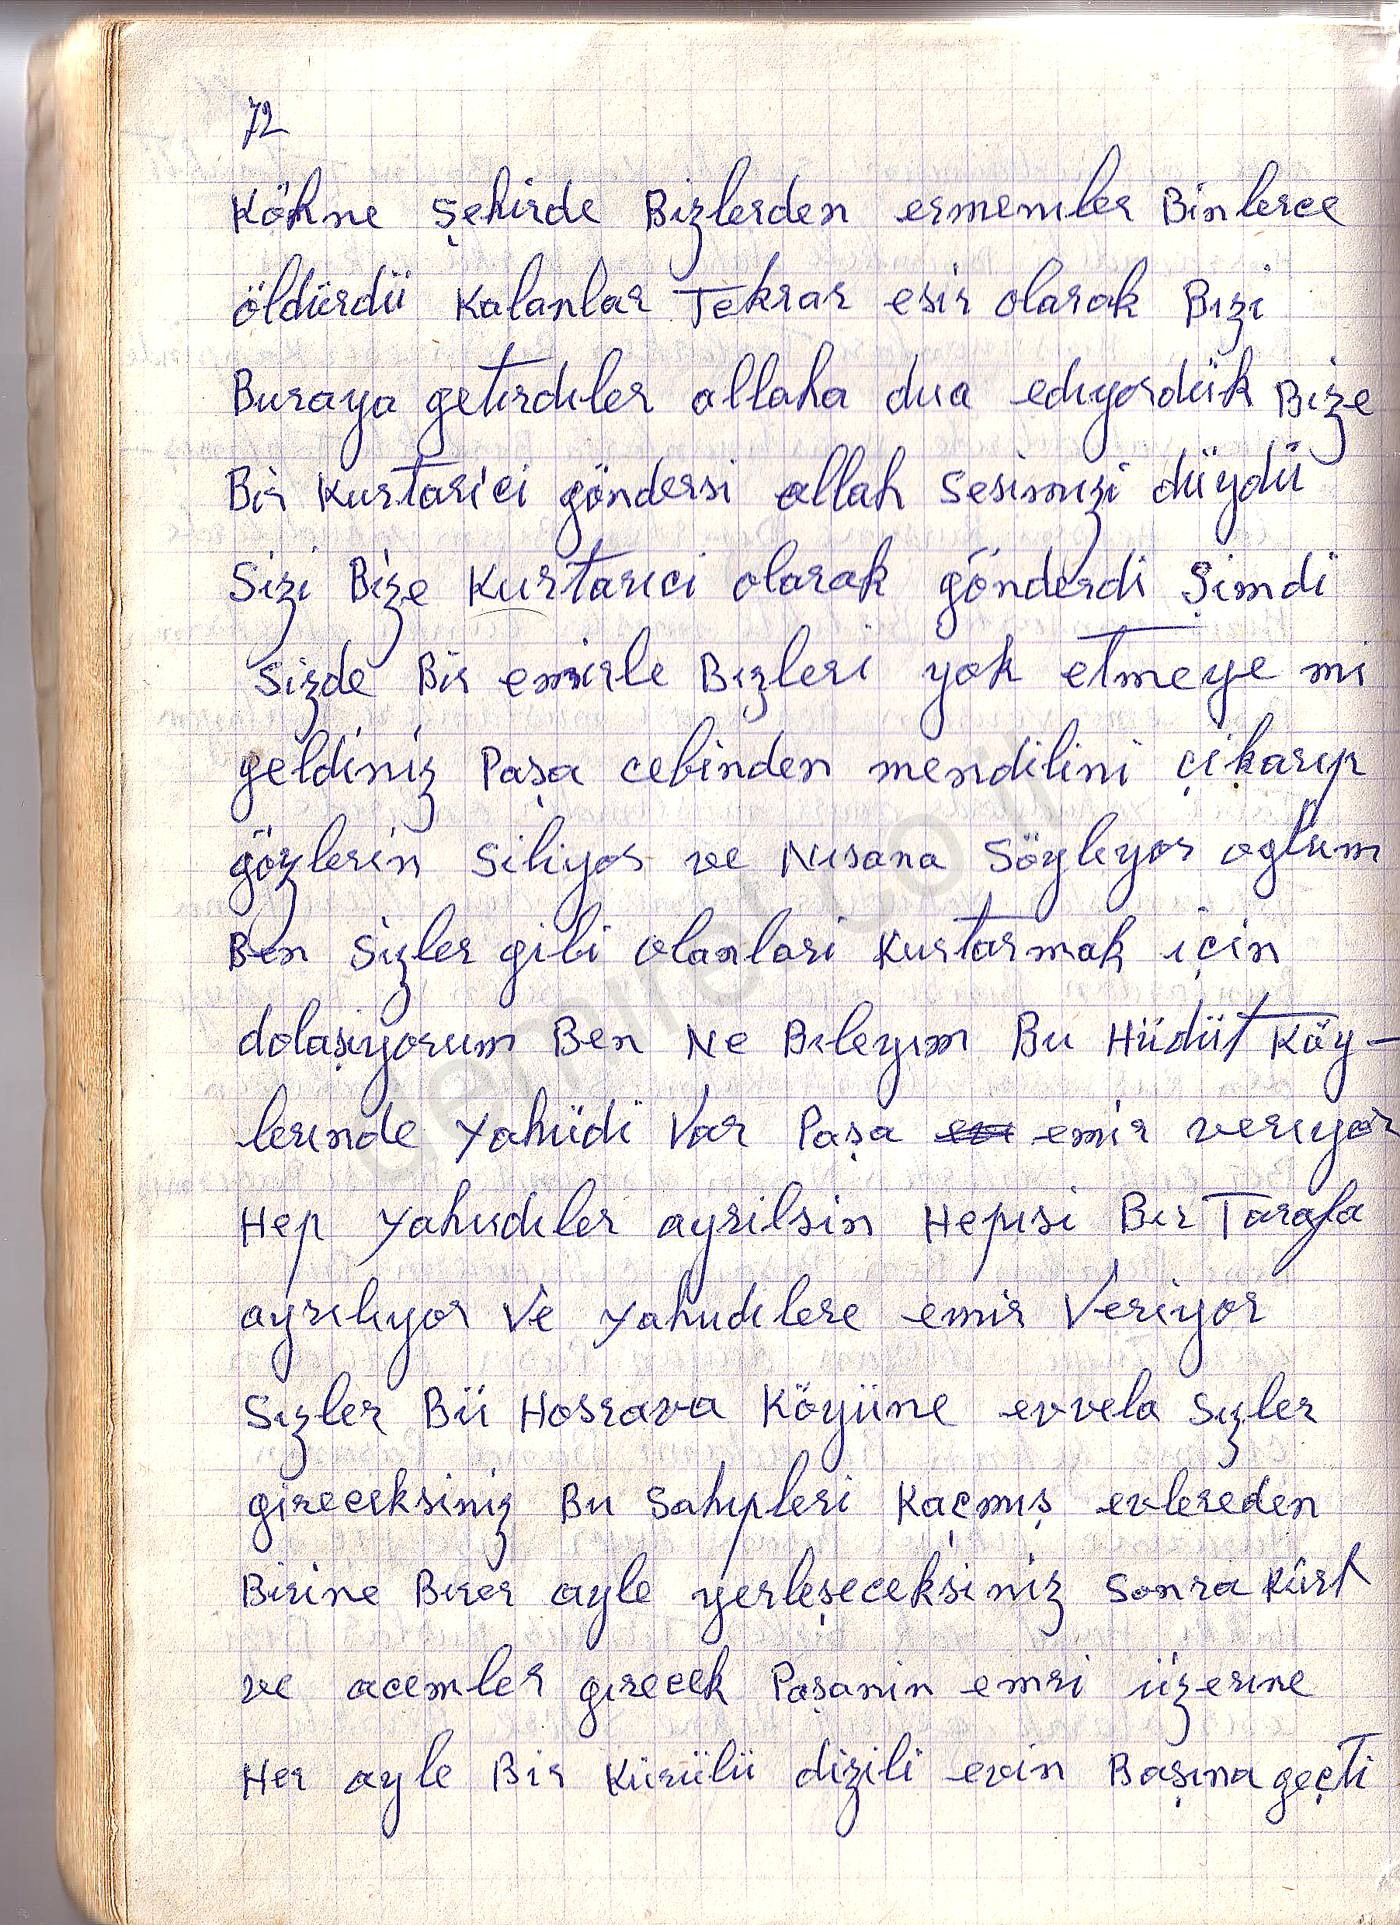 72
Köhne Şehirde Bizlerden ermeniler Binlerce
öldürdü Kalanlar Tekrar esir olarak Bizi
Buraya getirdıler allaha dua edıyordük Bize
Bir Kurtarici göndersi allah Sesımızi düydü
Sizi Bize Kurtarıci olarak gönderdi Şimdi
Sizde Bir emirle Bızleri yok etmeye mi
geldiniz Paşa cebinden mendilini çikarıp
gözlerin Siliyor ve Nısana Söylıyor oglum
Ben Sizler gibi olanlari Kurtarmak içın
dolaşıyorum Ben Ne Bıleyım Bu Hüdüt Köy-
lerınde Yahüdi Var Paşa emir verıyor
Hep Yahudıler ayrilsin Hepısi Bır Tarafa
ayrılıyor Ve Yahudılere emir Veriyor
Sızler Bü Hosrava Köyüne evvela Sızler
gireceksiniz Bu Sahıpleri Kaçmış evlereden
Birine Bırer ayle yerleşeceksiniz Sonra Kürt
ve acemler gırecek Paşanin emri üzerıne
Her ayle Bir Kürülü dizili evin Başına geçti
demirel.co.il